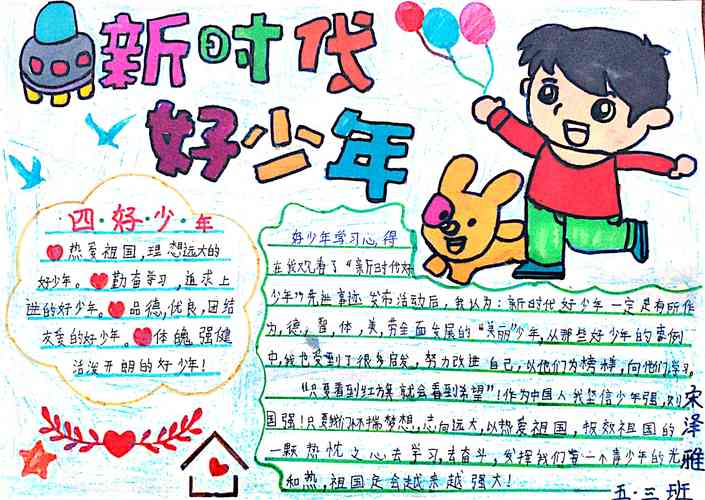 新时代
好少年
四·好·少·年
热爱祖国,理想远大的
好少年。勤奋学习,追求上
进的好少年。品德,优良,团结
友爱的好少年。体魄强健
活泼开朗的好少年!
好少年学习心得
在我观看了“新时代好
少年”先进事迹发布活动后,我认为:新时代好少年一定是有所作
为,德,智,体,美,劳全面发展的“美丽”少年,从那些好少年的事例
中,我也受到了很多启发,努力改进自己,以他们为榜样,向他们学习。
“只要看到红方案就会看到希望”!作为中国人我坚信少年强,则
国强!只要我们怀揣梦想,志向远大,以热爱祖国,报效祖国的
一颗热忱之心去学习,去奋斗,发挥我们每一个青少年的光
和热,祖国定会越来越强大!
宋泽雅
五·三班